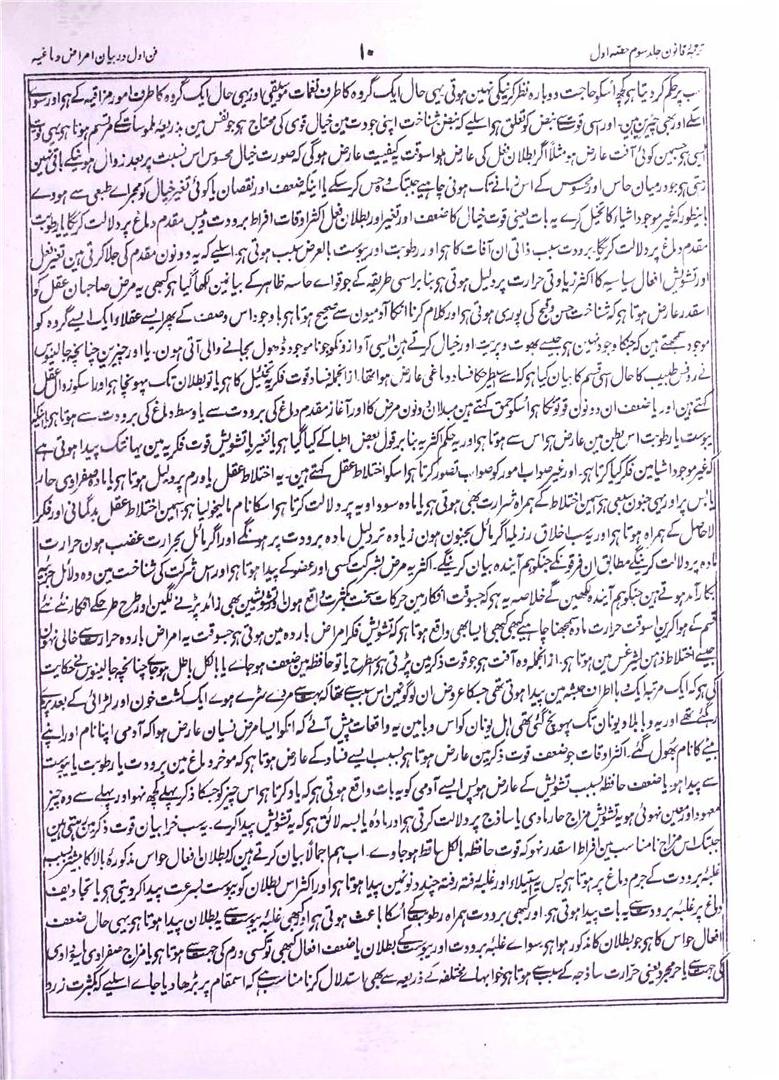 ترجمۂ قانون جلد سوم حصّہ اول ۱۰ فن اول در بیان امراض دماغیہ
سب پر حکم کر دیتا ہو کچھ اسکو حاجت دوبارہ نظر کرنیکی نہیں ہوتی یہی حال ایک گروہ کا طرف نغمات موسیقی اور یہی حال ایک گروہ کا طرف امور مذاقیہ کے ہو اور سواے
اسکے اور بھی چیزین ہین۔ اور اسی قوت سے نبض کو تعلق ہو اسلیے کہ نبض شناخت اپنی جودت مین خیال قوی کی محتاج ہو جو نفس مین بذریعۂ ملموسات کے مرتسم ہوتا ہو یہی قوت
ایسی ہو جسمین کوئی آفت عارض ہو مثلاً اگر بطلان فعل کی عارض ہو اسوقت کیفیت عارض ہوگی کہ صورت خیال محسوس اس نسبت پر بعد زوال ہونیکے باقی نہین
رہتی ہو جو درمیان حاس اور محسوس کے اس زمانے تک ہونی چاہیے جبتک وہ حس کر سکے یا اینکہ ضعف اور نقصان یا کوئی تغیر خیال کو مجراے طبعی سے ہووے
باینطور کہ غیر موجود اشیاء کا تخیل کرے یہ بات یعنی قوت خیال کا ضعف اور تغیر اور بطلان فعل اکثر اوقات افراط برودت و یبس مقدم دماغ پر دلالت کریگا یا رطوبت
مقدم دماغ پر دلالت کریگا۔ برودت سبب ذاتی ان آفات کا ہو اور رطوبت اور یبوست بالعرض سبب ہوتی ہو۔ اسلیے کہ یہ دونون مقدم کی جلا کرتی ہین تغیر فعل
اور تشویش افعال سیاسیہ کا اکثر زیادتی حرارت پر دلیل ہوتی ہو بنا بر اسی طریقہ کے جو قواے حاسہ ظاہر کے بیانمین لکھا گیا ہو کبھی یہ مرض صاحبان عقل کو
اسقدر عارض ہوتا ہو کہ شناخت حسن و قبح کی پوری ہوتی ہو اور کلام کرنا انکا آدمیون سے صحیح ہوتا ہو باوجود اس وصف کے پھر ایسے عقلا و ایک ایسے گروہ کو
موجود سمجھتے ہین کہ جنکا وجود نہین ہو جیسے بھوت و پریت اور خیال کرتے ہین ایسی آواز ونکو جو ناموجود ڈھول بجانے والی آتی ہون۔ یا اور چیزین چنانچہ جالینوس
نے روفس طبیب کا حال اسی قسم کا بیان کیا ہو کہ اسے اسیطرح کا فساد دماغی عارض ہوا تھا۔ ازانجملہ فساد قوت فکریہ و تخئیل کا ہو یا تو بطلان تک پہونچا ہو اور اسکو زوال عقل
کہتے ہین اور یا ضعف ان دونون قوتونکا ہو اسکو حمق کہتے ہین مبدا ان دونون مرض کا اور آغاز مقدم دماغ کی برودت سے یا وسط دماغ کی برودت سے ہوتا ہو اینکہ
یبوست یا رطوبت اس بطن مین عارض ہو اس سے ہوتا ہو اور یہ حکم اکثریہ بنا بر قول بعض اطبا کے کیا گیا ہو یا تغیر یا تشویش قوت فکریہ مین یہانتک پیدا ہوتی ہے
کہ غیر موجود اشیا مین فکر کیا کرتا ہو۔ اور غیر صواب امور کو صواب تصور کرتا ہو اسکو اختلاط عقل کہتے ہین۔ یہ اختلاط عقل یا ورم پر دلیل ہوتا ہو یا مادہ صفراوی حار
یابس پر اور یہی جنون سبعی ہو جسمین اختلاط کے ہمراہ شرارت بھی ہوتی ہو یا مادہ سوداویہ پر دلالت کرتا ہو اسکا نام مالیخولیا ہو جسمین اختلاط عقل بدگمانی اور فکر
لاحاصل کے ہمراہ ہوتا ہو اور یہ سب خلاق رذیلہ اگر مائل بجنون ہون زیادہ تر دلیل مادہ برودت پر ہونگے اور اگر مائل بجرارت غضب ہون حرارت
مادہ پر دلالت کرینگے مطابق ان فرقونکے جنکو ہم آیندہ بیان کرینگے۔ اکثر یہ مرض بشرکت کسی اور عضو کے پیدا ہوتا ہو اور اس شرکت کی شناخت مین وہ دلائل جزئیہ
بکار آمد ہوتے ہین جنکو ہم آیندہ لکھین گے خلاصہ یہ ہو کہ جسوقت افکار مین حرکات سخت بکثرت واقع ہون اور تشویشین بھی زائد پڑنے لگین اور طرح طرح کے افکار نئے نئے
قسم کے ہوا کرین اسوقت حرارت مادہ سمجھنا چاہیے کبھی کبھی ایسا بھی واقع ہوتا ہو کہ تشویش فکر امراض باردہ مین ہوتی ہو جسوقت یہ امراض باردہ حرارت سے خالی نہون
جیسے اختلاط ذہن لیثرغس مین ہوتا ہو۔ ازانجملہ وہ آفت ہو جو قوت ذکر مین پڑتی ہو اسطرح یا تو حافظہ مین ضعف ہوجاے یا بالکل باطل ہوجاے چنانچہ جالینوس نے حکایت
کی ہو کہ ایک مرتبہ ایک وبا اطراف حبشہ مین پیدا ہوئی تھی جسکا عروض ان لوگونمین اس سبب سے تھا کہ بہت سے مردے سڑے ہوے ایک کشت خون اور لڑائی کے بعد پڑے
رہگئے تھے اور یہ وبا بلاد یونان تک پہونچ گئی تھی اہل یونان کو اس وبا مین یہ واقعات پیش آئے کہ انکو ایسا مرض نسیان عارض ہوا کہ آدمی اپنا نام اور اپنے
بیٹے کا نام بھول گئے۔ اکثر اوقات جو ضعف قوت ذکر مین عارض ہوتا ہو بسبب ایسے فساد کے عارض ہوتا ہو کہ موخر دماغ مین برودت یا رطوبت یا یبوست
سے پیدا ہو۔ یا ضعف حافظہ بسبب تشویش کے عارض ہو پس ایسے آدمی کو یہ بات واقع ہوتی ہو کہ یاد کرتا ہو اس چیز کو جسکا ذکر پہلے کچھ نہو اور پہلے سے وہ چیز
معہود اور معین نہوئی ہو یہ تشویش مزاج حار مادی یا ساذج پر دلالت کرتی ہو اور مادہ یابسہ لائق ہو کہ یہ تشویش پیدا کرے۔ یہ سب خرابیان قوت ذکر مین ہوتی ہین
جبتک اس مزاج نامناسب مین افراط اسقدر نہو کہ قوت حافظہ بالکل ساقط ہوجاوے۔ اب ہم اجمالاً بیان کرتے ہین کہ بطلان افعال حواس مذکورۂ بالا کا بیشتر بسبب
غلبۂ برودت کے جرم دماغ پر ہوتا ہو پس یہ استیلا اور غلبہ رفتہ رفتہ چند دنونمین پیدا ہوتا ہو اور اکثر اس بطلان کو یبوست بسرعت پیدا کر دیتی ہو یا تجاویف
دماغ پر غلبۂ برودت سے یہ بات پیدا ہوتی ہو۔ اور کبھی برودت ہمراہ رطوبت کے اُسکا باعث ہوتی ہو اور کبھی غلبۂ یبوست سے یہ بطلان پیدا ہوتا ہو یہی حال ضعف
افعال حواس کا ہو جو بطلان کا مذکور ہوا ہو سواے غلبۂ برودت اور یبوست کے بطلان یا ضعف افعال کبھی تو کسی ورم کی جہت سے ہوتا ہو یا مزاج صفراوی یا سوداوی
کی جہت سے یا حر مجرد یعنی حرارت ساذجہ کے سبب سے ہوتا ہو خوابہاے مختلفہ کے ذریعہ سے بھی استدلال کرنا مناسب ہے کہ اسمقام پر بڑھا دیا جاے اسلیے کہ بکثرت زرد